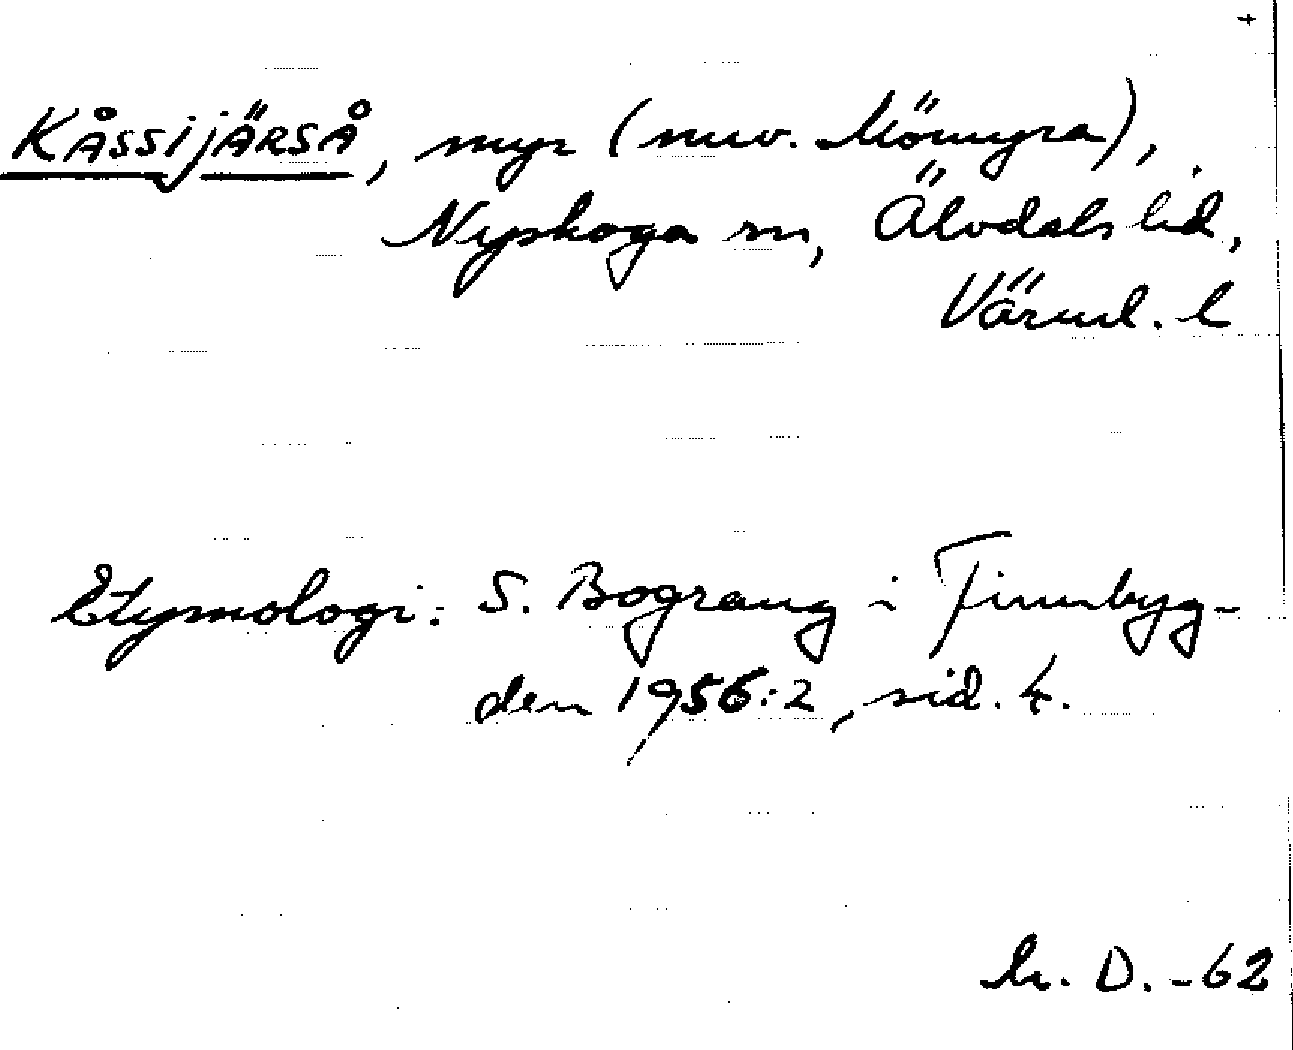 +
KÅSSIJÄRSÅ, myr (nuv. Mömyra),
Nyskoga sn, Älvdals hd,
Värml. l
Etymologi: S. Bograng i Finnbyg-
den 1956:2, sid. 4.
D. -62